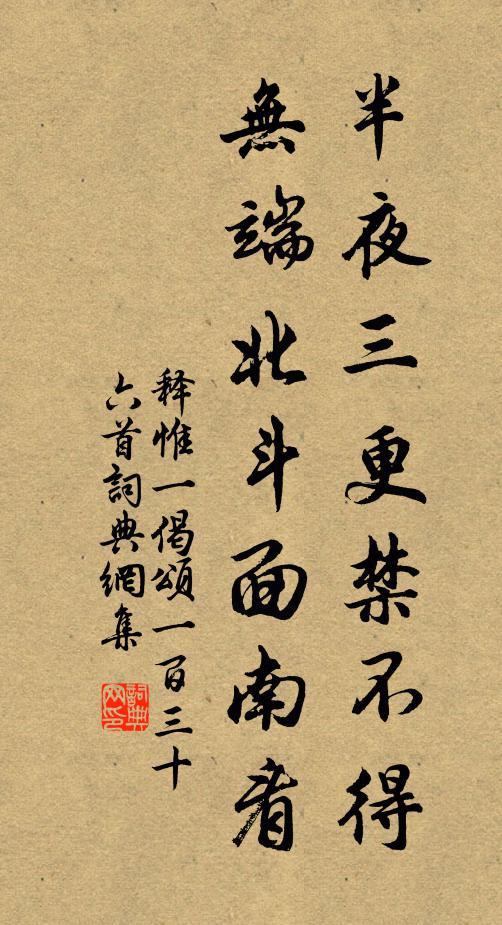 半夜三更禁不得
無端北斗面南看
釋惟一偈頌一百三十
六首詞典網集
詞典
网印